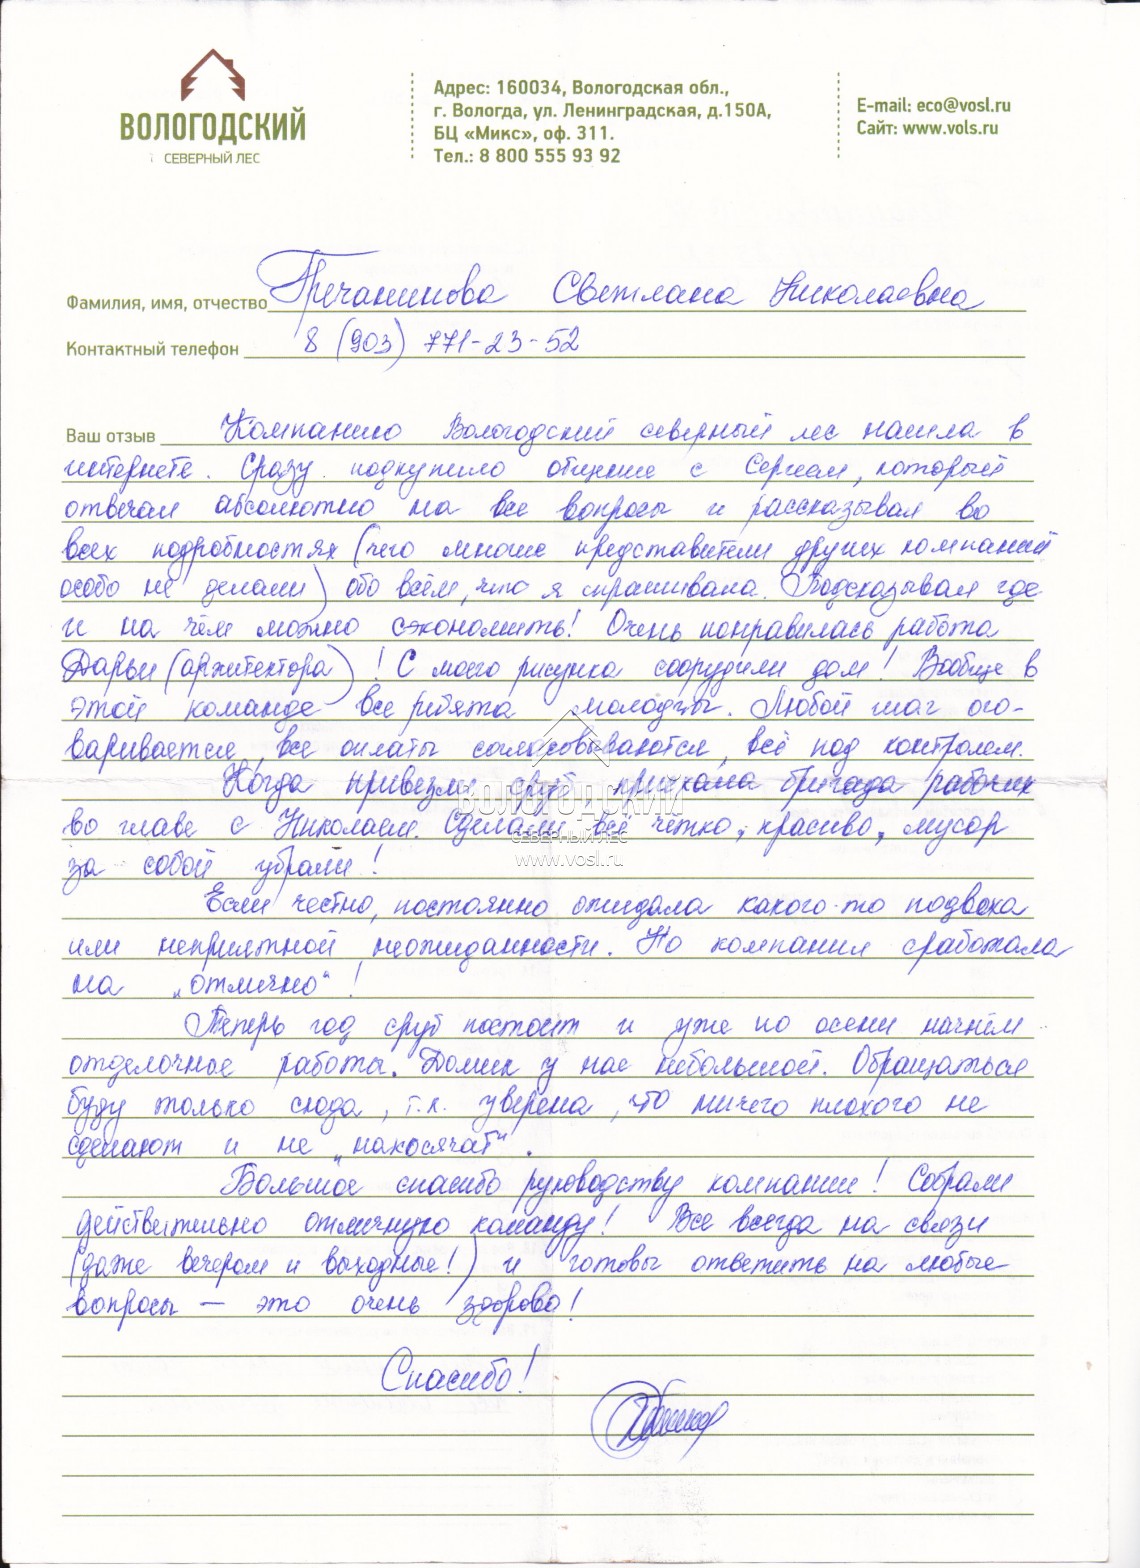 ВОЛОГОДСКИЙ
СЕВЕРНЫЙ ЛЕС
Адрес: 160034, Вологодская обл.,
г. Вологда, ул. Ленинградская, д.150А,
БЦ «Микс», оф. 311.
Тел.: 8 800 555 93 92
E-mail: eco@vosl.ru
Сайт: www.vols.ru
Фамилия, имя, отчество Гречаникова Светлана Николаевна
Контактный телефон 8 (903) 771-23-52
Ваш отзыв Компанию Вологодский северный лес нашла в
интернете. Сразу подкупило общение с Сергеем, который
отвечал абсолютно на все вопросы и рассказывал во
всех подробностях (чего многие представители других компаний
особо не делали) обо всём, что я спрашивала. Подсказывал где
и на чём можно сэкономить! Очень понравилась работа
Дарьи (архитектора)! С моего рисунка соорудили дом! Вообще в
этой команде все ребята молодцы. Любой шаг ого-
варивается, все оплаты согласовываются, всё под контролем.
Когда привезли сруб приехала бригада рабочих
во главе с Николаем. Сделали всё чётко, красиво, мусор
за собой убрали!
Если честно, постоянно ожидала какого-то подвоха
или неприятной неожиданности. Но компания сработала
на „отлично“!
Теперь год сруб постоит и уже по осени начнём
отделочные работа. Домик у нас небольшой. Обращаться
буду только сюда, т.к. уверена, что ничего плохого не
сделают и не „накосячат“.
Большое спасибо руководству компании! Собрали
действительно отличную команду! Все всегда на связи
(даже вечером и выходные!) и готовы ответить на любые
вопросы — это очень здорово!
Спасибо!
ВОЛОГОДСКИЙ
СЕВЕРНЫЙ ЛЕС
www.vosl.ru